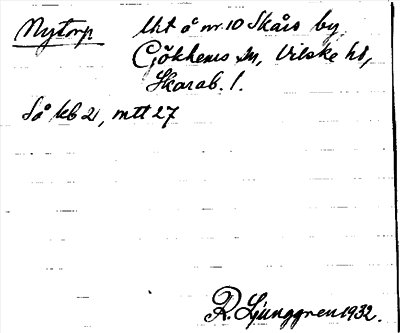 Nytorp lht å nr 10 Skårs by,
Gökhems sn, Vilske hd,
Skarab. l.
Så kb 21, mtt 27
R. Ljunggren 1932.